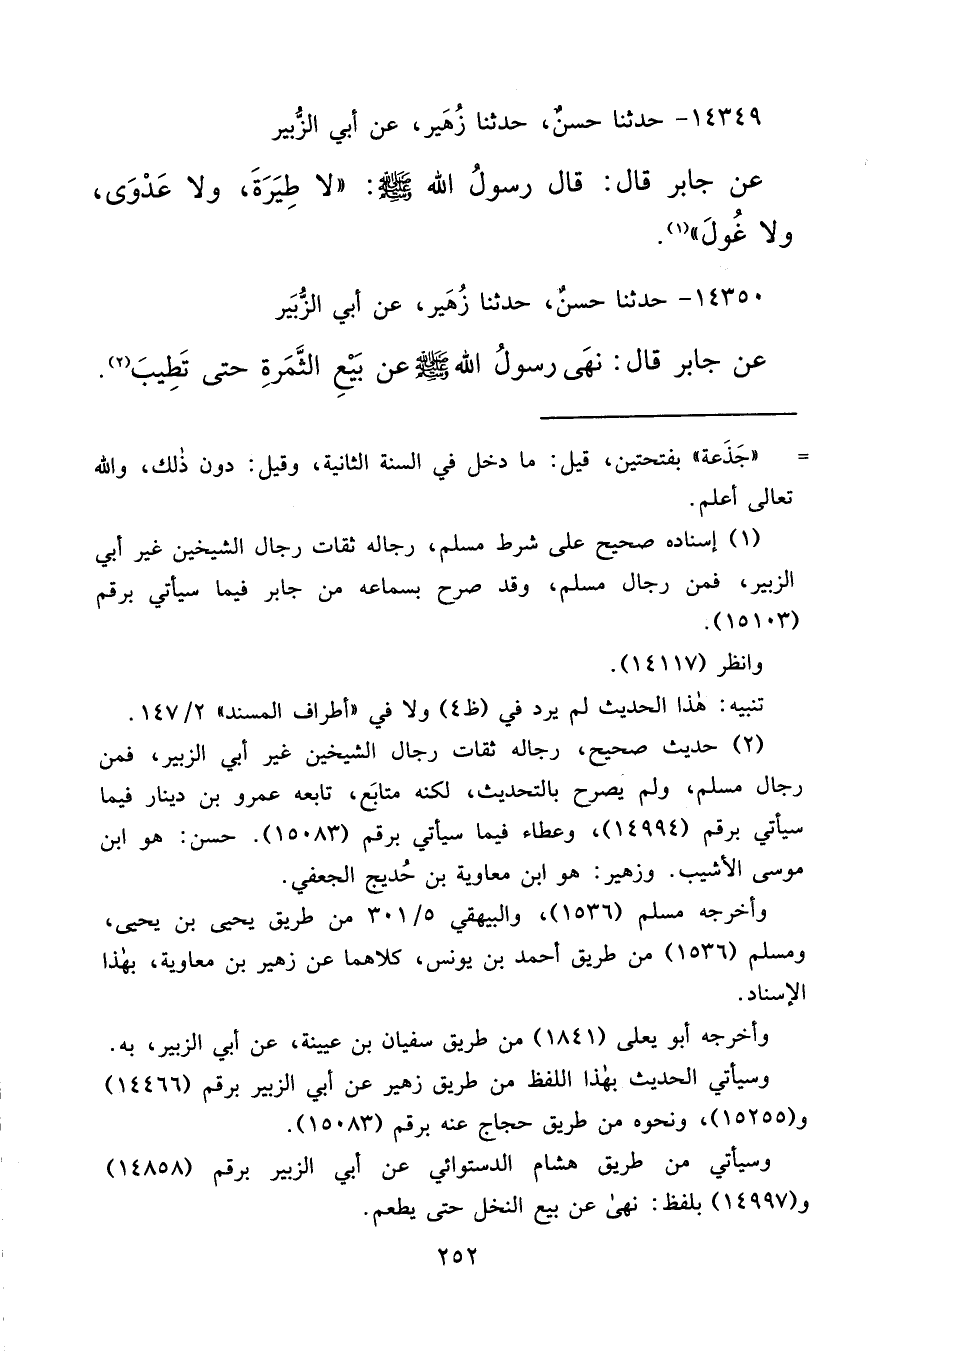 ١٤٣٤٩- حدثنا حسنٌ، حدثنا زُهَير، عن أبي الزُّبير
عن جابر قال: قال رسولُ الله ﷺ: «لا طِيَرَةَ، ولا عَدْوَى،
ولا غُولَ»(١).
١٤٣٥٠- حدثنا حسنٌ، حدثنا زُهَير، عن أبي الزُّبَير
عن جابر قال: نهَى رسولُ الله ﷺ عن بَيْعِ الثَّمَرةِ حتى تَطِيبَ(٢).
= «جَذَعة» بفتحتين، قيل: ما دخل في السنة الثانية، وقيل: دون ذٰلك، والله
تعالى أعلم.
(١) إسناده صحيح على شرط مسلم، رجاله ثقات رجال الشيخين غير أبي
الزبير، فمن رجال مسلم، وقد صرح بسماعه من جابر فيما سيأتي برقم
(١٥١٠٣).
وانظر (١٤١١٧).
تنبيه: هٰذا الحديث لم يرد في (ظ٤) ولا في «أطراف المسند» ١٤٧/٢.
(٢) حديث صحيح، رجاله ثقات رجال الشيخين غير أبي الزبير، فمن
رجال مسلم، ولم يصرح بالتحديث، لكنه متابَع، تابعه عمرو بن دينار فيما
سيأتي برقم (١٤٩٩٤)، وعطاء فيما سيأتي برقم (١٥٠٨٣). حسن: هو ابن
موسى الأشيب. وزهير: هو ابن معاوية بن حُديج الجعفي.
وأخرجه مسلم (١٥٣٦)، والبيهقي ٣٠١/٥ من طريق يحيى بن يحيى،
ومسلم (١٥٣٦) من طريق أحمد بن يونس، كلاهما عن زهير بن معاوية، بهٰذا
الإسناد.
وأخرجه أبو يعلى (١٨٤١) من طريق سفيان بن عيينة، عن أبي الزبير، به.
وسيأتي الحديث بهٰذا اللفظ من طريق زهير عن أبي الزبير برقم (١٤٤٦٦)
و(١٥٢٥٥)، ونحوه من طريق حجاج عنه برقم (١٥٠٨٣).
وسيأتي من طريق هشام الدستوائي عن أبي الزبير برقم (١٤٨٥٨)
و(١٤٩٩٧) بلفظ: نهىٰ عن بيع النخل حتى يطعم.
٢٥٢